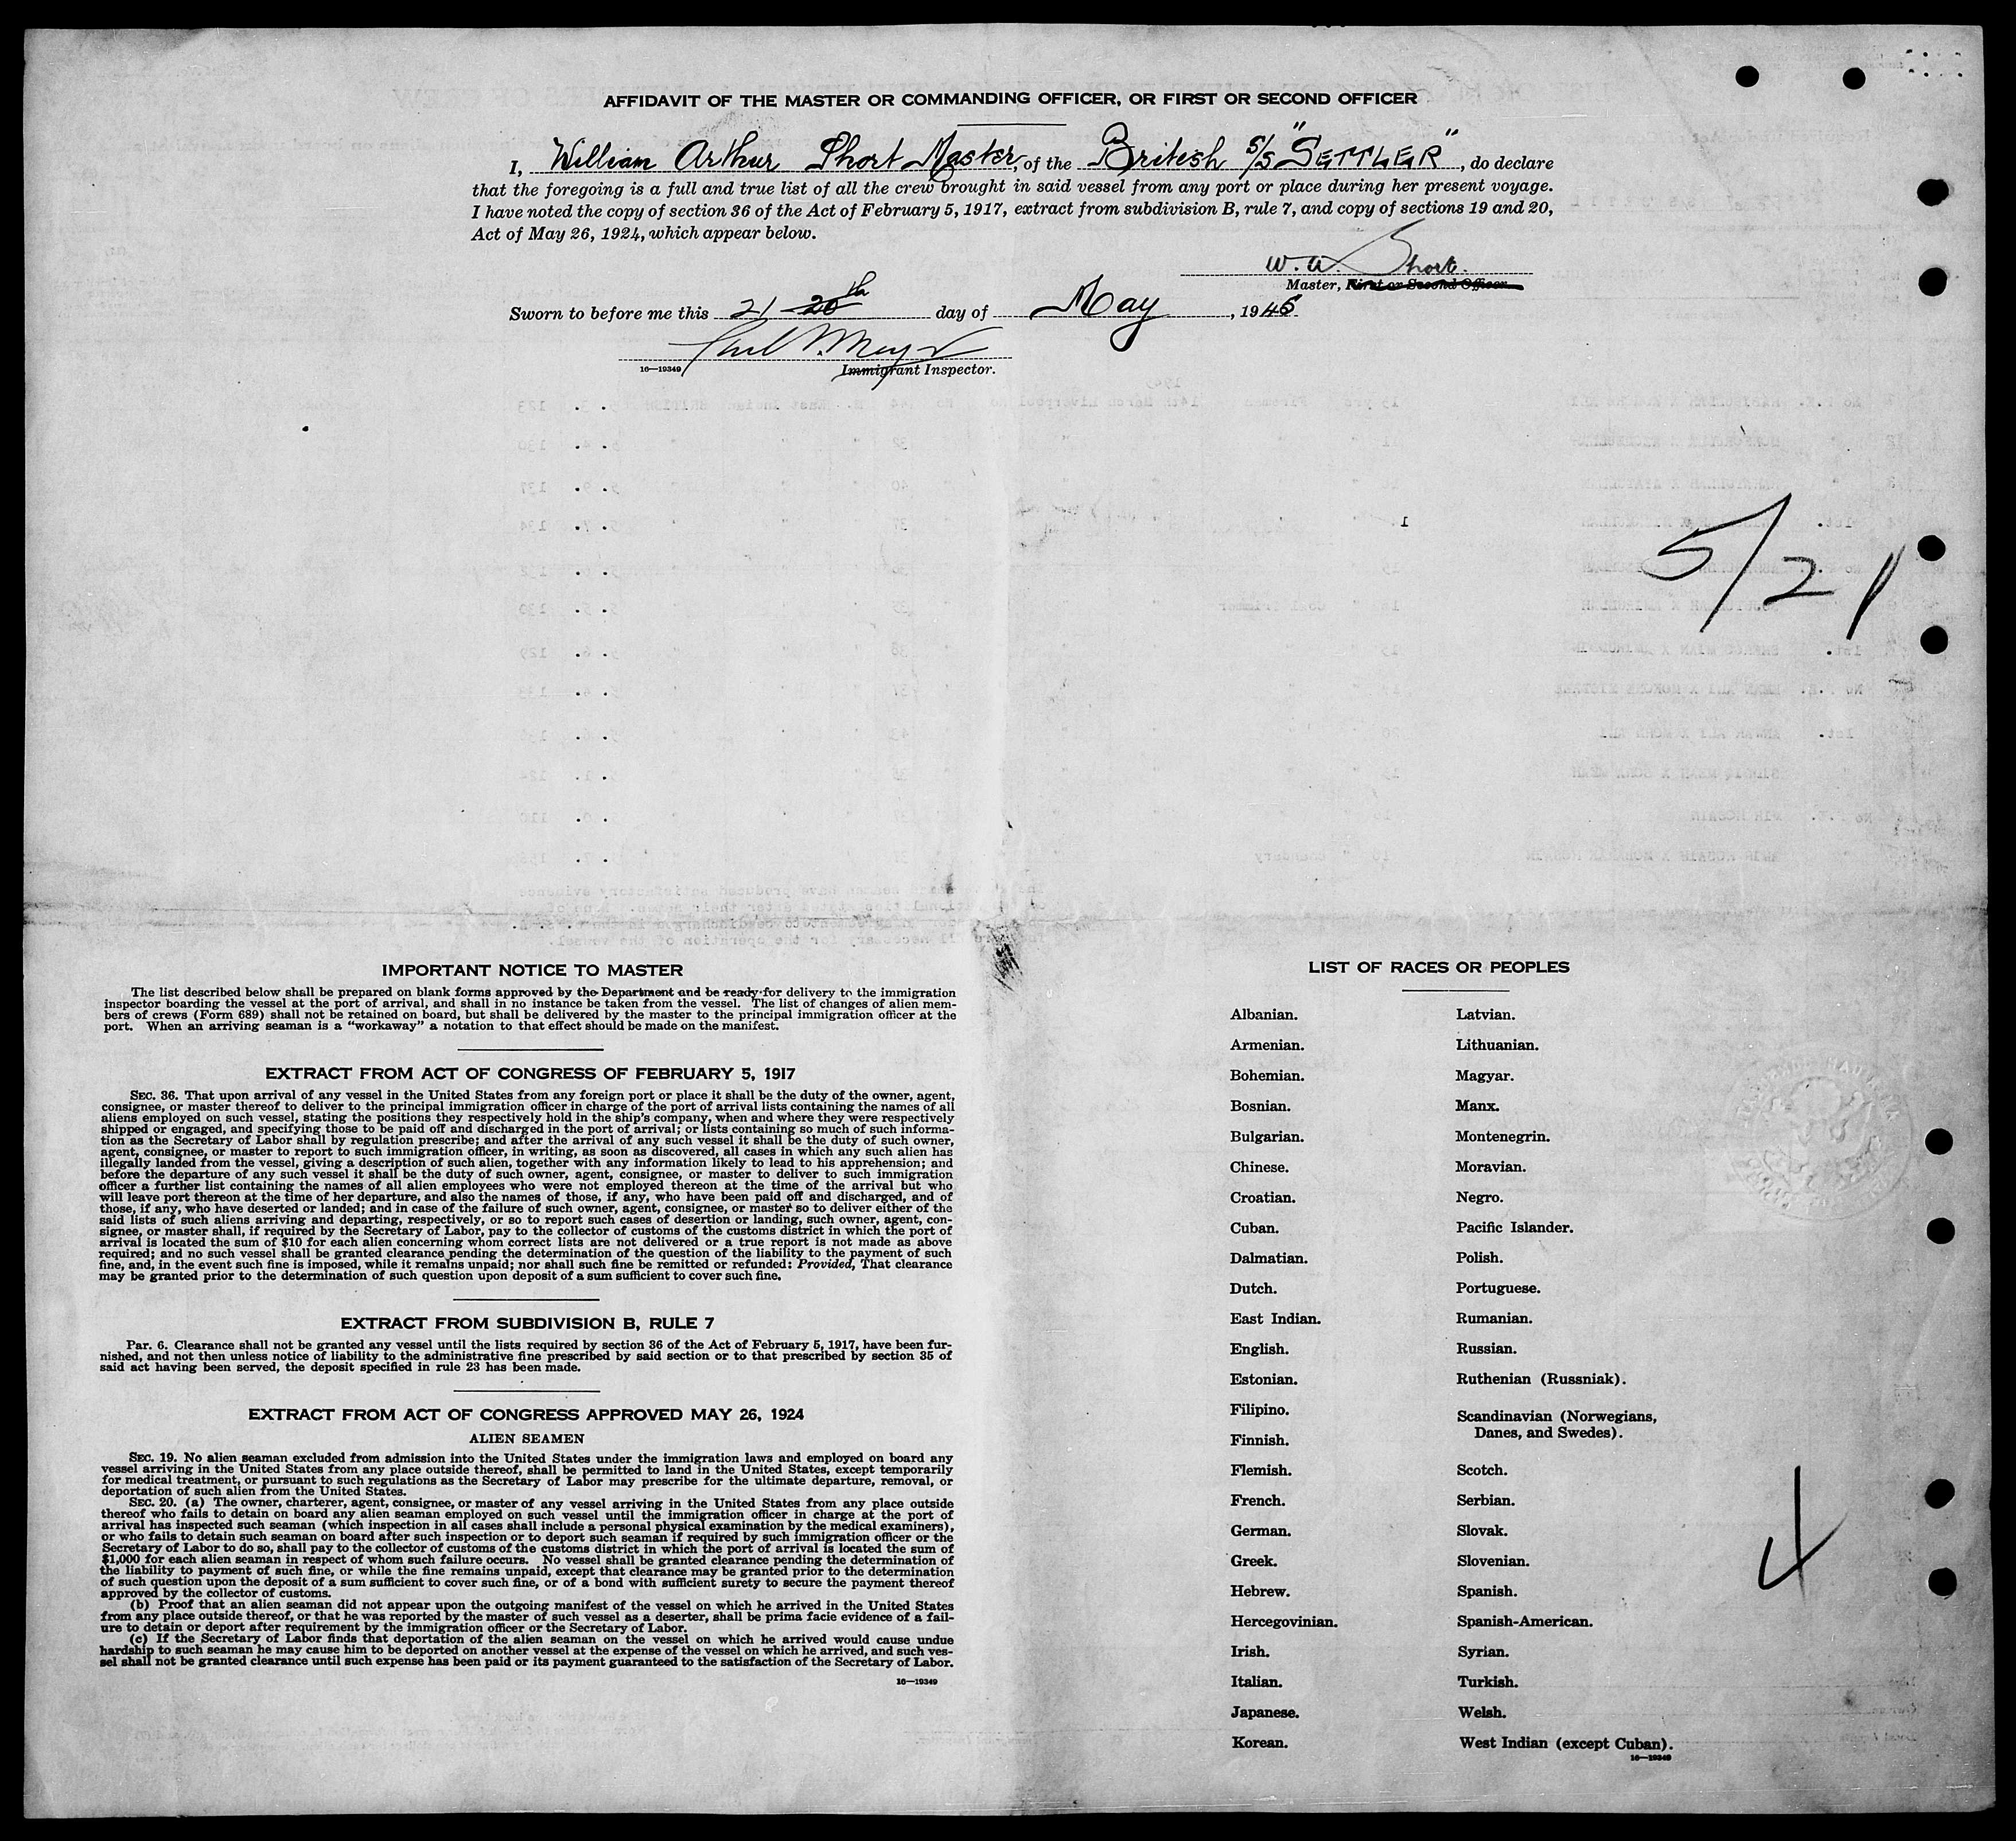 AFFIDAVIT OF THE MASTER OR COMMANDING OFFICER, OR FIRST OR SECOND OFFICER
I, William Arthur Short Master, of the British S/S "SETTLER", do declare
that the foregoing is a full and true list of all the crew brought in said vessel from any port or place during her present voyage.
I have noted the copy of section 36 of the Act of February 5, 1917, extract from subdivision B, rule 7, and copy of sections 19 and 20,
Act of May 26, 1924, which appear below.
W. A. Short.
Master, First or Second Officer.
Sworn to before me this 21 20th day of May, 1945
16—19349 Immigrant Inspector.
5/21
IMPORTANT NOTICE TO MASTER
The list described below shall be prepared on blank forms approved by the Department and be ready for delivery to the immigration
inspector boarding the vessel at the port of arrival, and shall in no instance be taken from the vessel. The list of changes of alien mem-
bers of crews (Form 689) shall not be retained on board, but shall be delivered by the master to the principal immigration officer at the
port. When an arriving seaman is a "workaway" a notation to that effect should be made on the manifest.
EXTRACT FROM ACT OF CONGRESS OF FEBRUARY 5, 1917
SEC. 36. That upon arrival of any vessel in the United States from any foreign port or place it shall be the duty of the owner, agent,
consignee, or master thereof to deliver to the principal immigration officer in charge of the port of arrival lists containing the names of all
aliens employed on such vessel, stating the positions they respectively hold in the ship's company, when and where they were respectively
shipped or engaged, and specifying those to be paid off and discharged in the port of arrival; or lists containing so much of such informa-
tion as the Secretary of Labor shall by regulation prescribe; and after the arrival of any such vessel it shall be the duty of such owner,
agent, consignee, or master to report to such immigration officer, in writing, as soon as discovered, all cases in which any such alien has
illegally landed from the vessel, giving a description of such alien, together with any information likely to lead to his apprehension; and
before the departure of any such vessel it shall be the duty of such owner, agent, consignee, or master to deliver to such immigration
officer a further list containing the names of all alien employees who were not employed thereon at the time of the arrival but who
will leave port thereon at the time of her departure, and also the names of those, if any, who have been paid off and discharged, and of
those, if any, who have deserted or landed; and in case of the failure of such owner, agent, consignee, or master so to deliver either of the
said lists of such aliens arriving and departing, respectively, or so to report such cases of desertion or landing, such owner, agent, con-
signee, or master shall, if required by the Secretary of Labor, pay to the collector of customs of the customs district in which the port of
arrival is located the sum of $10 for each alien concerning whom correct lists are not delivered or a true report is not made as above
required; and no such vessel shall be granted clearance pending the determination of the question of the liability to the payment of such
fine, and, in the event such fine is imposed, while it remains unpaid; nor shall such fine be remitted or refunded: Provided, That clearance
may be granted prior to the determination of such question upon deposit of a sum sufficient to cover such fine.
EXTRACT FROM SUBDIVISION B, RULE 7
Par. 6. Clearance shall not be granted any vessel until the lists required by section 36 of the Act of February 5, 1917, have been fur-
nished, and not then unless notice of liability to the administrative fine prescribed by said section or to that prescribed by section 35 of
said act having been served, the deposit specified in rule 23 has been made.
EXTRACT FROM ACT OF CONGRESS APPROVED MAY 26, 1924
ALIEN SEAMEN
SEC. 19. No alien seaman excluded from admission into the United States under the immigration laws and employed on board any
vessel arriving in the United States from any place outside thereof, shall be permitted to land in the United States, except temporarily
for medical treatment, or pursuant to such regulations as the Secretary of Labor may prescribe for the ultimate departure, removal, or
deportation of such alien from the United States.
SEC. 20. (a) The owner, charterer, agent, consignee, or master of any vessel arriving in the United States from any place outside
thereof who fails to detain on board any alien seaman employed on such vessel until the immigration officer in charge at the port of
arrival has inspected such seaman (which inspection in all cases shall include a personal physical examination by the medical examiners),
or who fails to detain such seaman on board after such inspection or to deport such seaman if required by such immigration officer or the
Secretary of Labor to do so, shall pay to the collector of customs of the customs district in which the port of arrival is located the sum of
$1,000 for each alien seaman in respect of whom such failure occurs. No vessel shall be granted clearance pending the determination of
the liability to payment of such fine, or while the fine remains unpaid, except that clearance may be granted prior to the determination
of such question upon the deposit of a sum sufficient to cover such fine, or of a bond with sufficient surety to secure the payment thereof
approved by the collector of customs.
(b) Proof that an alien seaman did not appear upon the outgoing manifest of the vessel on which he arrived in the United States
from any place outside thereof, or that he was reported by the master of such vessel as a deserter, shall be prima facie evidence of a fail-
ure to detain or deport after requirement by the immigration officer or the Secretary of Labor.
(c) If the Secretary of Labor finds that deportation of the alien seaman on the vessel on which he arrived would cause undue
hardship to such seaman he may cause him to be deported on another vessel at the expense of the vessel on which he arrived, and such ves-
sel shall not be granted clearance until such expense has been paid or its payment guaranteed to the satisfaction of the Secretary of Labor.
16—19349
LIST OF RACES OR PEOPLES
Albanian.
Armenian.
Bohemian.
Bosnian.
Bulgarian.
Chinese.
Croatian.
Cuban.
Dalmatian.
Dutch.
East Indian.
English.
Estonian.
Filipino.
Finnish.
Flemish.
French.
German.
Greek.
Hebrew.
Hercegovinian.
Irish.
Italian.
Japanese.
Korean.
Latvian.
Lithuanian.
Magyar.
Manx.
Montenegrin.
Moravian.
Negro.
Pacific Islander.
Polish.
Portuguese.
Rumanian.
Russian.
Ruthenian (Russniak).
Scandinavian (Norwegians,
Danes, and Swedes).
Scotch.
Serbian.
Slovak.
Slovenian.
Spanish.
Spanish-American.
Syrian.
Turkish.
Welsh.
West Indian (except Cuban).
16—19349
4